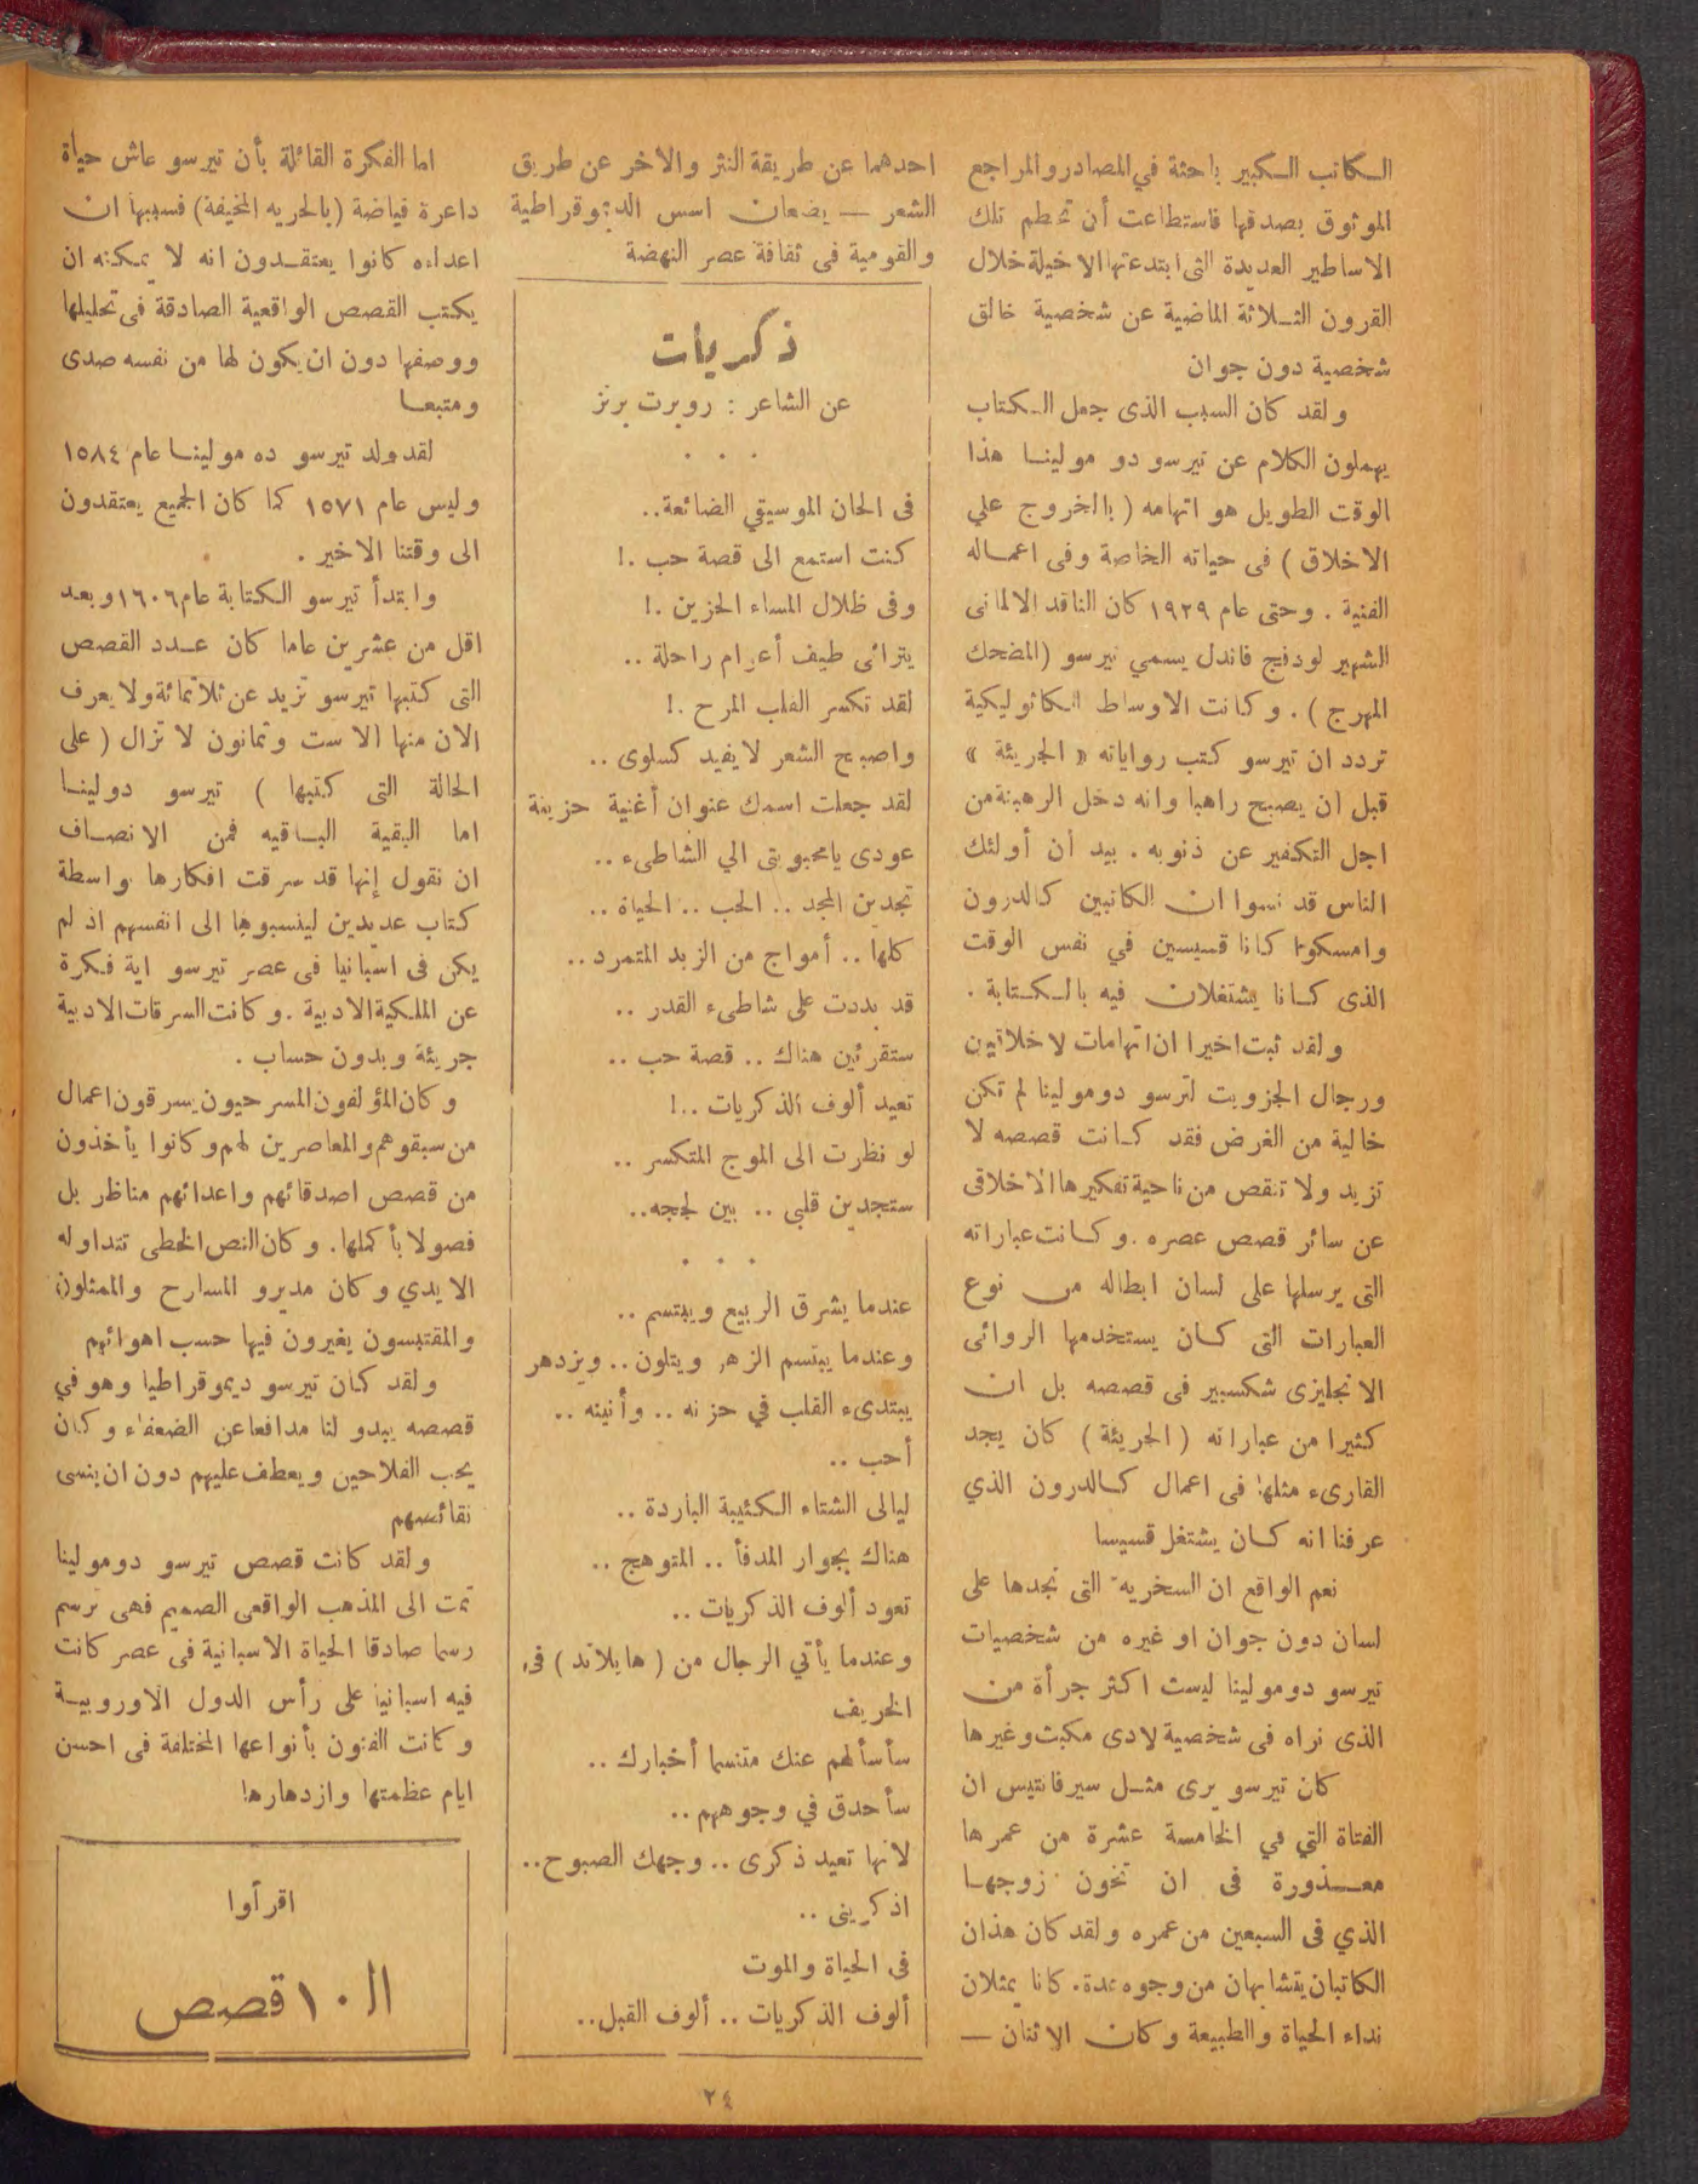 الكاتب الكبير باحثة في المصادر والمراجع
الموثوق بصدقها فاستطاعت أن تحطم تلك
الاساطير العديدة التى ابتدعتها الاخيلة خلال
القرون الثلاثة الماضية عن شخصية خالق
شخصية دون جوان
ولقد كان السبب الذى جعل الكتاب
يهملون الكلام عن تيرسو دو مولينا هذا
الوقت الطويل هو اتهامه ( بالخروج علي
الاخلاق ) فى حياته الخاصة وفى اعماله
الفنية . وحتى عام ١٩٢٩ كان الناقد الالمانى
الشهير لودفج فاندل يسمي تيرسو (المضحك
المهرج ) . وكانت الاوساط الكاثوليكية
تردد ان تيرسو كتب رواياته « الجريئة »
قبل ان يصبح راهبا وانه دخل الرهبنة من
اجل التكفير عن ذنوبه . بيد أن أولئك
الناس قد نسوا ان الكاتبين كالدرون
وامسكوا كانا قسيسين في نفس الوقت
الذى كانا يشتغلان فيه بالكتابة .
ولقد ثبت اخيرا ان اتهامات لاخلاتيين
ورجال الجزويت لترسو دومولينا لم تكن
خالية من الغرض فقد كانت قصصه لا
تزيد ولا تنقص من ناحية تفكيرها الاخلاقى
عن سائر قصص عصره . وكانت عباراته
التى يرسلها على لسان ابطاله من نوع
العبارات التى كان يستخدمها الروائى
الانجليزى شكسبير فى قصصه بل ان
كثيرا من عباراته ( الجريئة ) كان يجد
القارىء مثلها فى اعمال كالدرون الذي
عرفنا انه كان يشتغل قسيسا
نعم الواقع ان السخرية التى نجدها على
لسان دون جوان او غيره من شخصيات
تيرسو دومولينا ليست اكثر جرأة من
الذى نراه فى شخصية لادى مكبث وغيرها
كان تيرسو يرى مثل سيرفانتيس ان
الفتاة التي في الخامسة عشرة من عمرها
معذورة فى ان تخون زوجها
الذي فى السبعين من عمره ولقد كان هذان
الكاتبان يتشابهان من وجوه عدة. كانا يمثلان
نداء الحياة والطبيعة وكان الاثنان —
احدهما عن طريقة النثر والاخر عن طريق
الشعر — يضعان اسس الديموقراطية
والقومية فى ثقافة عصر النهضة
ذكريات
عن الشاعر : روبرت برنز
. . .
فى الحان الموسيقي الضائعة..
كنت استمع الى قصة حب .!
وفى ظلال المساء الحزين .!
يترائى طيف أعوام راحلة ..
لقد تكسر القلب المرح .!
واصبح الشعر لا يفيد كسلوى ..
لقد جعلت اسمك عنوان أغنية حزينة
عودى يا محبوبتى الي الشاطىء ..
تجدين المجد .. الحب .. الحياة ..
كلها .. أمواج من الزبد المتمرد ..
قد بددت على شاطىء القدر ..
ستقرئين هناك .. قصة حب ..
تعيد ألوف الذكريات ..!
لو نظرت الى الموج المتكسر ..
ستجدين قلبى .. بين لججه..
. . .
عندما يشرق الربيع ويبتسم ..
وعندما يبتسم الزهر ويتلون .. ويزدهر
يبتدىء القلب في حزنه .. وأنينه ..
أحب ..
ليالى الشتاء الكئيبة الباردة ..
هناك بجوار المدفأ .. المتوهج ..
تعود ألوف الذكريات ..
وعندما يأتي الرجال من ( هايلاند ) فى
الخريف
سأسألهم عنك متنسما أخبارك ..
سأحدق في وجوههم ..
لانها تعيد ذكرى .. وجهك الصبوح..
اذكرينى ..
فى الحياة والموت
ألوف الذكريات .. ألوف القبل..
اما الفكرة القائلة بأن تيرسو عاش حياة
داعرة فياضة (بالحريه المخيفة) فسببها ان
اعداءه كانوا يعتقدون انه لا يمكنه ان
يكتب القصص الواقعية الصادقة فى تحليلها
ووصفها دون ان يكون لها من نفسه صدى
ومتبعا
لقد ولد تيرسو ده مولينا عام ١٥٨٤
وليس عام ١٥٧١ كما كان الجميع يعتقدون
الى وقتنا الاخير .
وابتدأ تيرسو الكتابة عام ١٦٠٦ وبعد
اقل من عشرين عاما كان عدد القصص
التى كتبها تيرسو تزيد عن ثلاثمائة ولا يعرف
الان منها الا ست وثمانون لا تزال ( على
الحالة التى كتبها ) تيرسو دولينا
اما البقية الباقيه فمن الانصاف
ان نقول إنها قد سرقت افكارها بواسطة
كتاب عديدين لينسبوها الى انفسهم اذ لم
يكن فى اسبانيا فى عصر تيرسو اية فكرة
عن الملكية الادبية . وكانت السرقات الادبية
جريئة وبدون حساب .
وكان المؤلفون المسرحيون يسرقون اعمال
من سبقوهم والمعاصرين لهم وكانوا يأخذون
من قصص اصدقائهم واعدائهم مناظر بل
فصولا بأكملها. وكان النص الخطى تتداوله
الايدي وكان مديرو المسارح والممثلون
والمقتبسون يغيرون فيها حسب اهوائهم
ولقد كان تيرسو ديموقراطيا وهو في
قصصه يبدو لنا مدافعا عن الضعفاء وكان
يحب الفلاحين ويعطف عليهم دون ان ينسى
نقائسهم
ولقد كانت قصص تيرسو دومولينا
تمت الى المذهب الواقعى الصميم فهى ترسم
رسما صادقا الحياة الاسبانية فى عصر كانت
فيه اسبانيا على رأس الدول الاوروبية
وكانت الفنون بأنواعها المختلفة فى احسن
ايام عظمتها وازدهارها
اقرأوا
الـ ١٠ قصص
٢٤